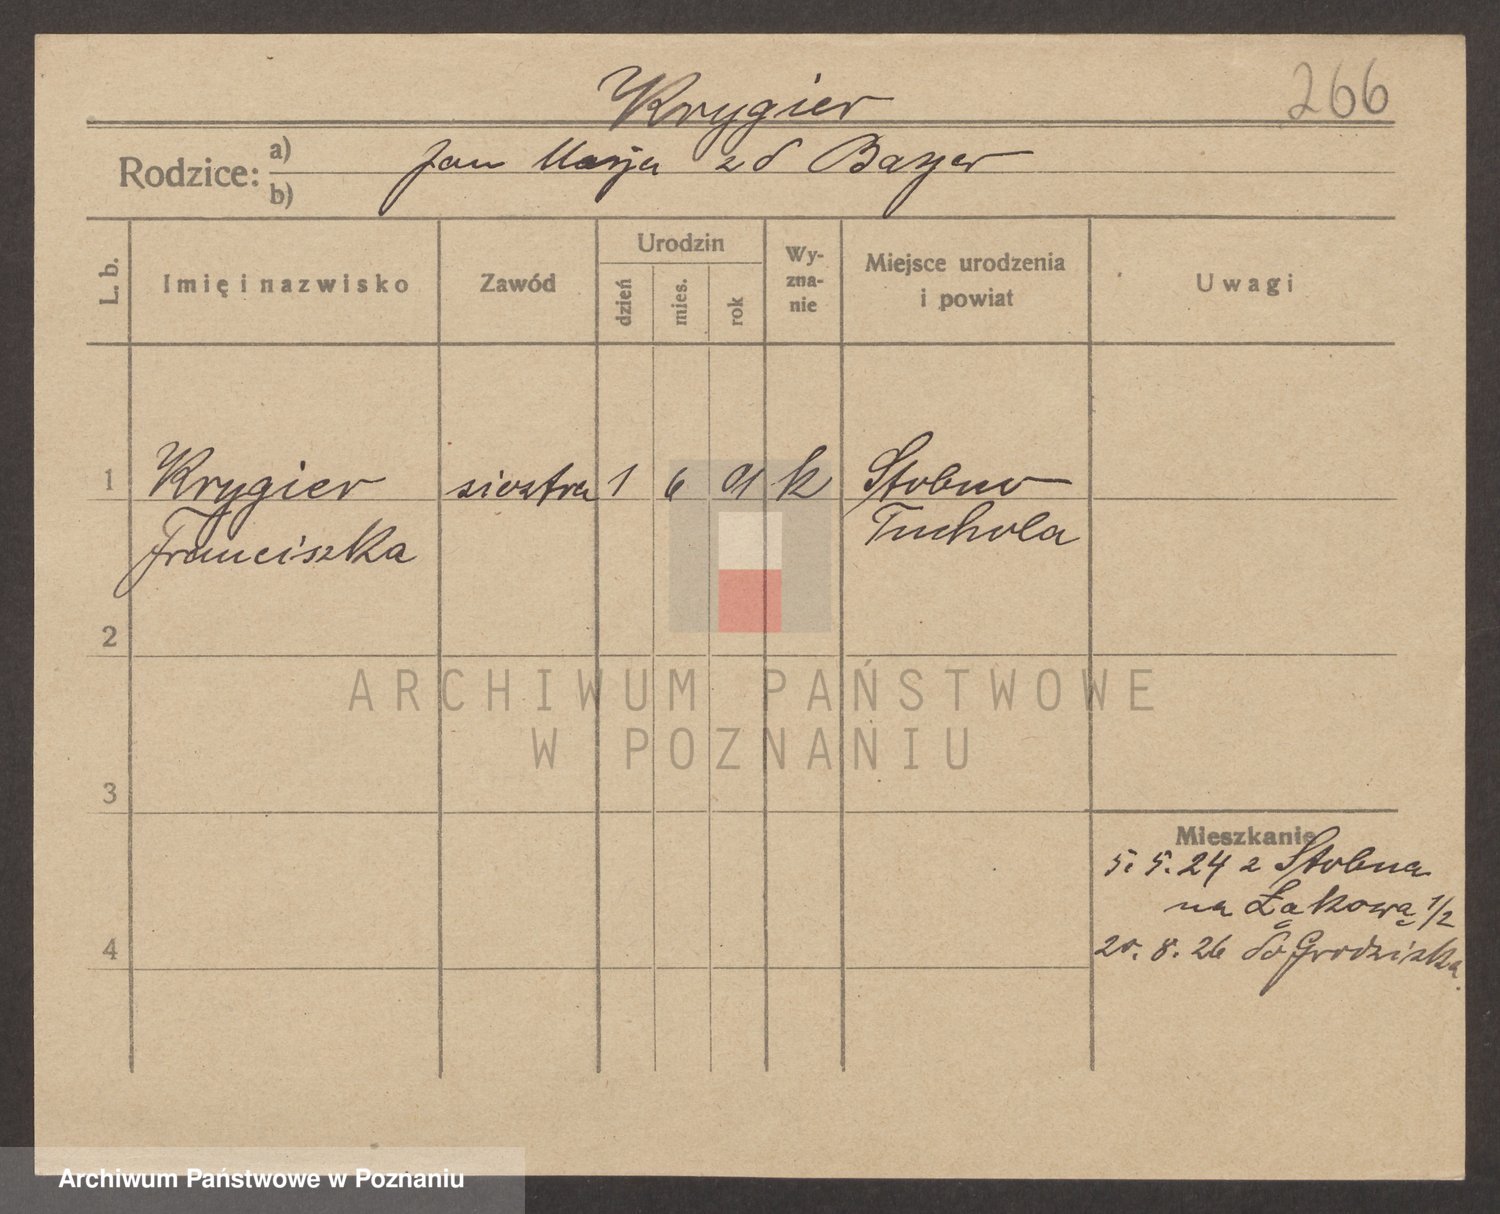 Krygier
266
Rodzice: a) Jan Marja zd Bayer
b)
L. b. Imię i nazwisko Zawód Urodzin dzień mies. rok Wyznanie Miejsce urodzenia i powiat Uwagi
1 Krygier siostra 1 6 91 k Stobno
Franciszka Tuchola
2
3
4
Mieszkanie
5. 5. 24 z Stobna
na Łąkową 1/2
20. 8. 26 do Grodziska.
ARCHIWUM PAŃSTWOWE
W POZNANIU
Archiwum Państwowe w Poznaniu